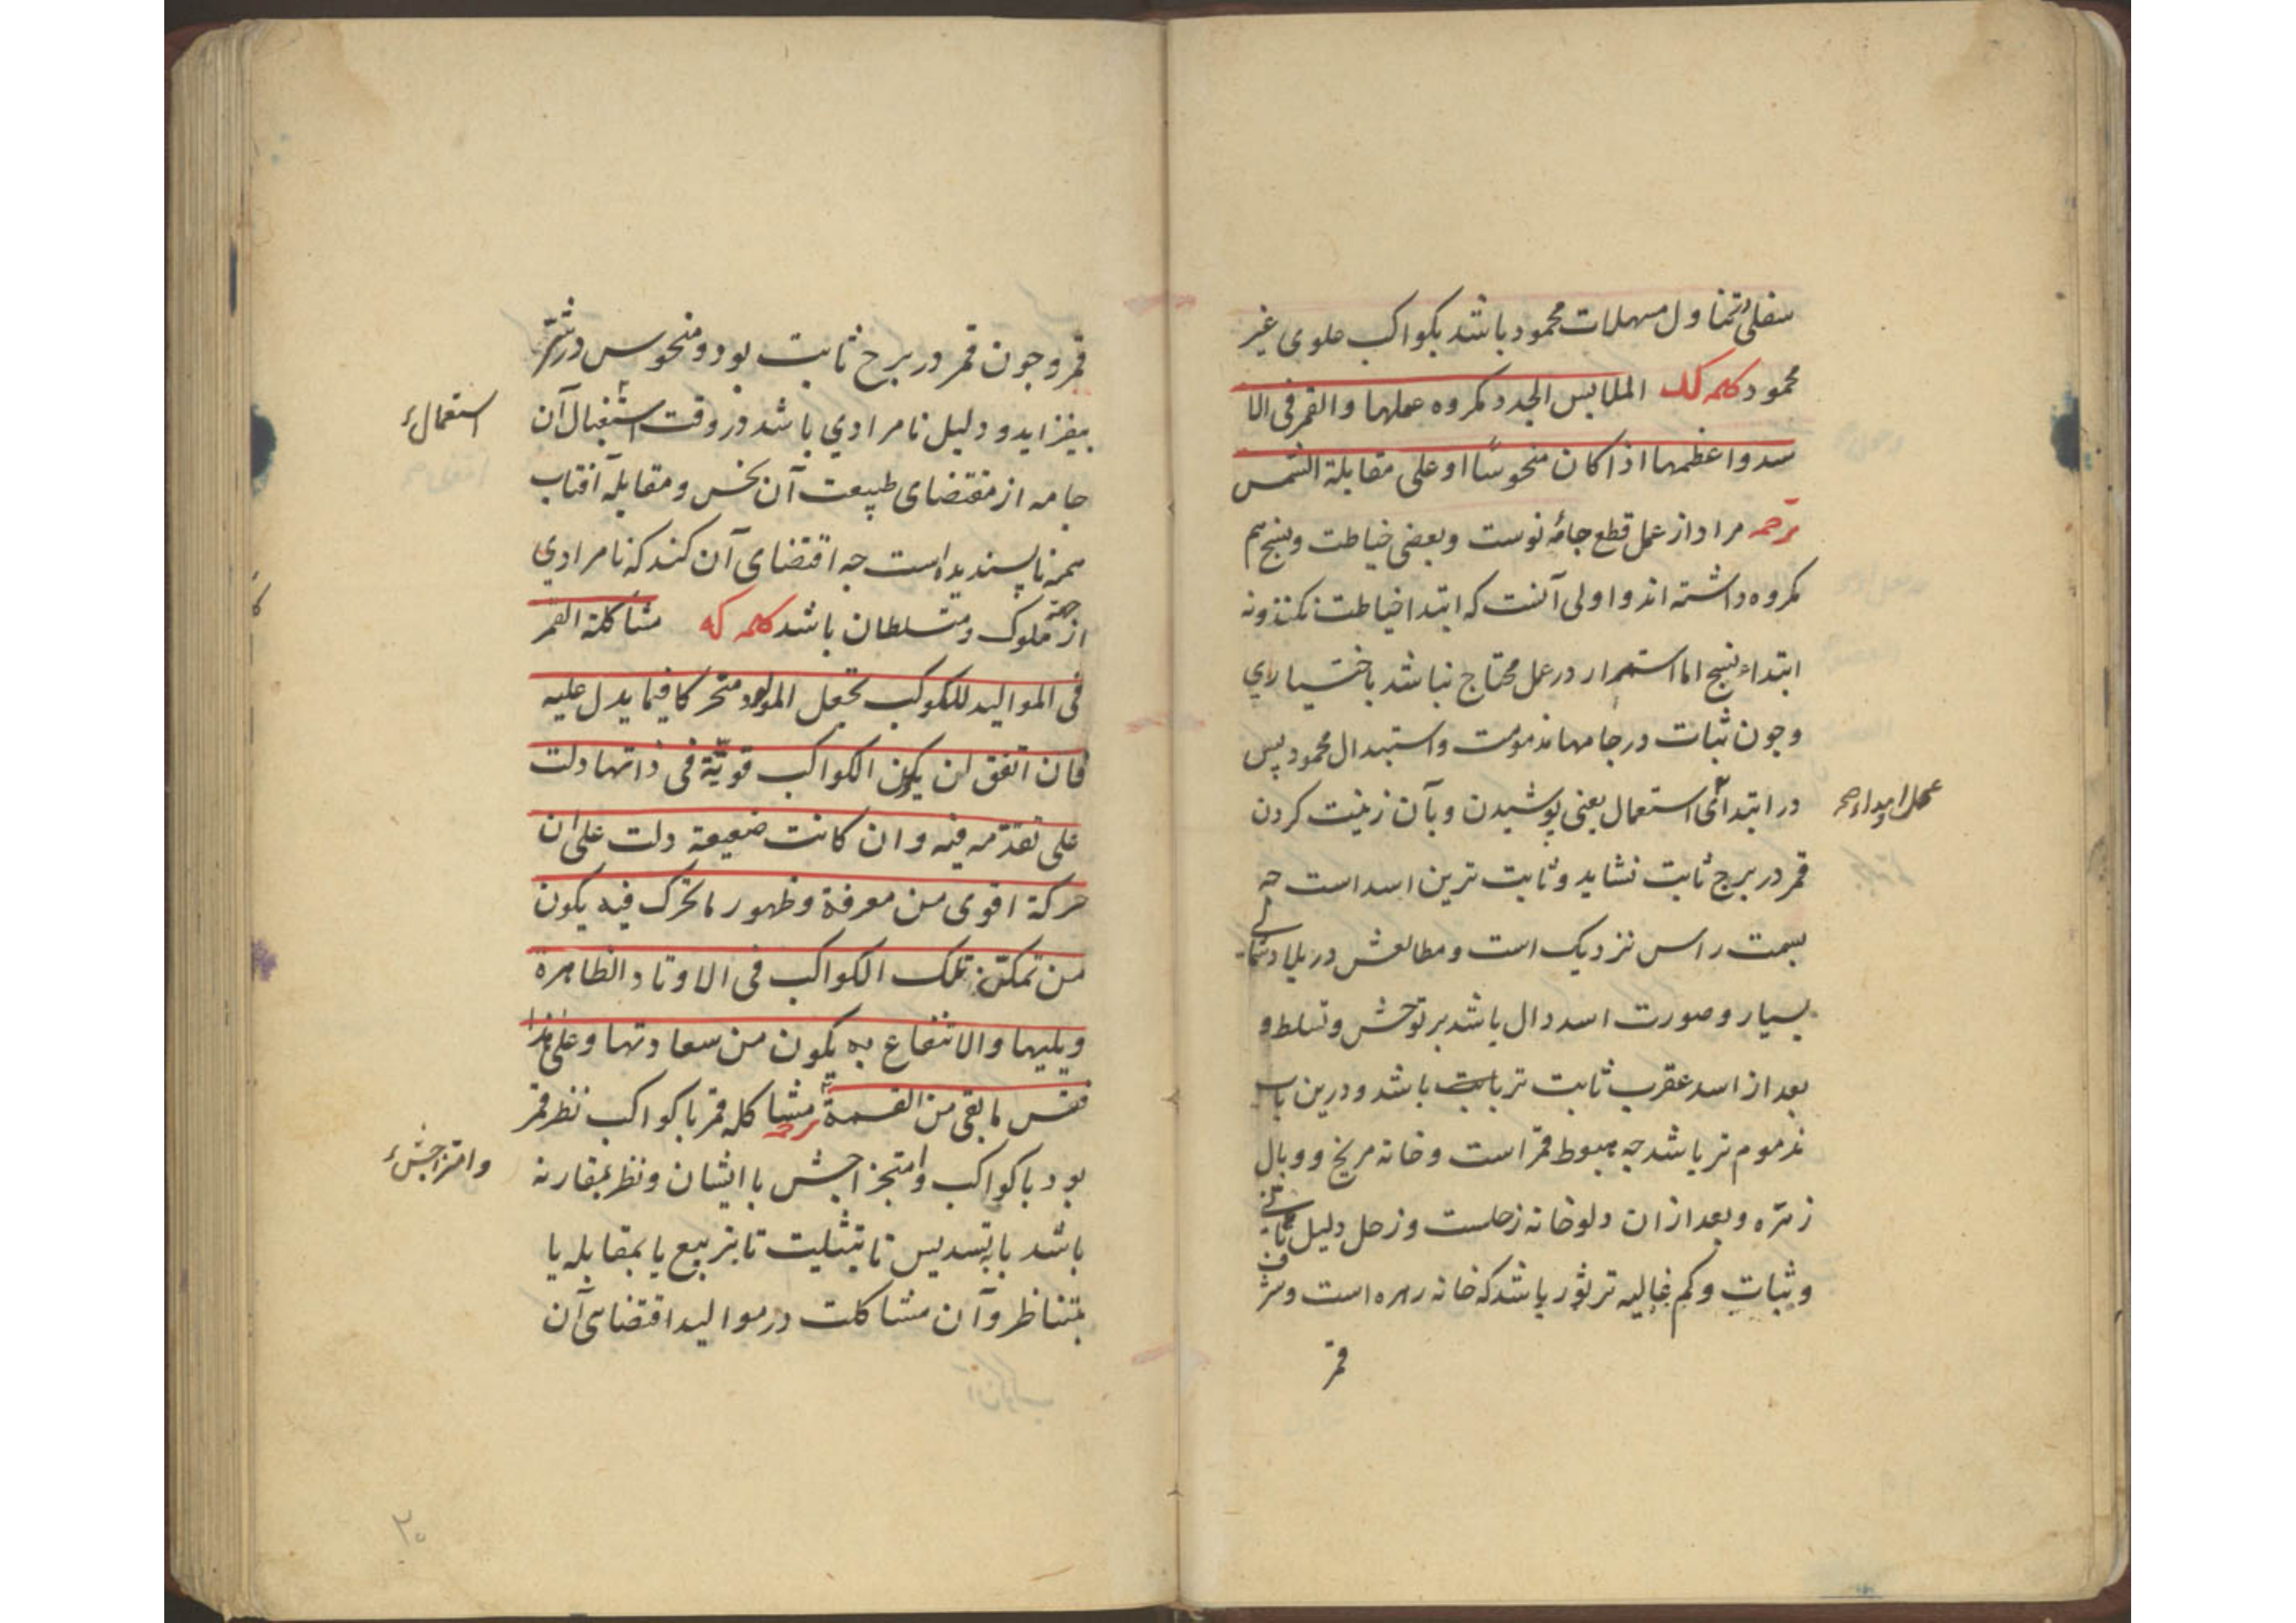 سفلی و تناول مسهلات محمود باشد بکواکب علوی غیر
محمود کلمه کد الملابس الجدد مکروه عملها والقمر فی الا
سد واعظمها اذا کان منحوسا او علی مقابلة الشمس
ترجمه مراد از عمل قطع جامهٔ نوست وبعضی خیاطت ونسج هم
مکروه داشته اند و اولی آنست که ابتدا خیاطت نکنند ونه
ابتداء نسج اما استمرار در عمل محتاج نباشد باختیاری
وجون ثبات در جامها مذمومست واستبدال محمود پس
در ابتدای استعمال یعنی پوشیدن وبآن زینت کردن
قمر در برج ثابت نشاید وثابت ترین اسد است جه
بسمت راس نزدیک است ومطالعش در بلاد شمالی
بسیار وصورت اسد دال باشد بر توحش وتسلط و
بعد از اسد عقرب ثابت تر باشد ودرین باب
مذموم تر باشد جه هبوط قمر است وخانه مریخ ووبال
زهره وبعد از ان دلو خانه زحلست وزحل دلیل
وثبات وکم غایله تر ثور باشد که خانه زهره است وشرف
قمر
قمر وجون قمر در برج ثابت بود ومنحوس در شر
بیفزاید ودلیل نامرادی باشد در وقت اشتغال آن
استعمال
جامه از مقتضای طبیعت آن نحس ومقابله آفتاب
همه ناپسندیده است جه اقتضای آن کند که نامرادی
از جهة ملوک ومتسلطان باشد کلمه که مشاکلة القمر
فی الموالید للکوکب تجعل المولود متحرکا فیما یدل علیه
فان اتفق ان یکون الکواکب قویّة فی ذاتها دلت
علی تقدّمه فیه وان کانت ضعیفة دلت علی ان
حرکة اقوی من معرفة وظهور ما تحرک فیه یکون
من تمکن تلک الکواکب فی الاوتاد الظاهرة
ویلیها والانتفاع به یکون من سعادتها وعلی هذا
فقس ما بقی من القسمة ترجمه مشاکله قمر با کواکب نظر قمر
بود با کواکب وامتزاجش با ایشان ونظر بمقارنه
وامتزاجش
باشد یا بتسدیس تا بتثلیث تا بتربیع یا بمقابله یا
بتناظر وآن مشاکلت در موالید اقتضای آن
۲۰